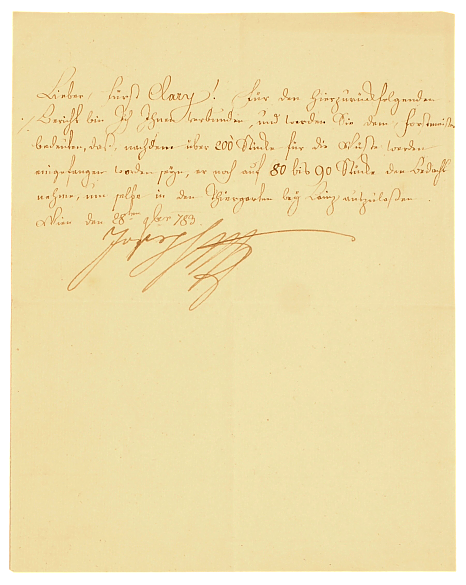 Lieber Fürst Clary! Für den hierzurückfolgenden
Bericht bin Ich Ihnen verbunden, und werden Sie dem Forstmeister
bedeuten, daß, nachdem über 200 Stücke für die werden
eingefangen worden seyn, er noch auf 80 bis 90 Stücke den Bedacht
nehme, um selbe in den Thiergarten bey Lainz auszulassen.
Wien den 28ten 9ber 783.
Joseph